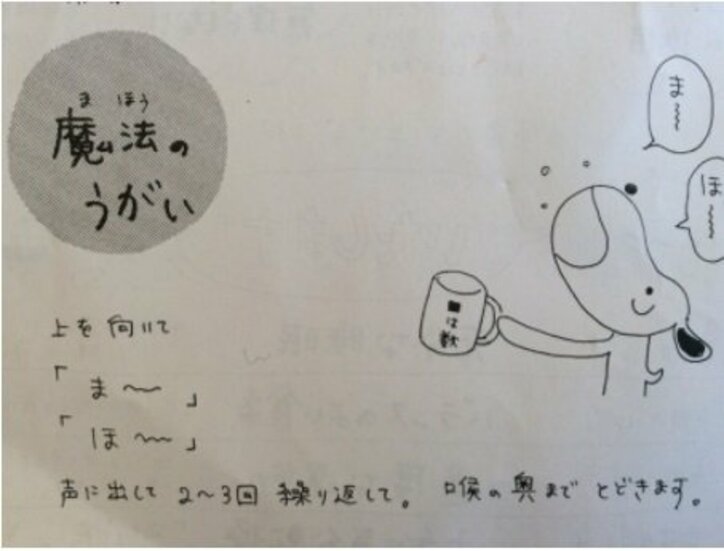 ま ほう
魔法の
うがい
ま〜〜
ほ〜〜
上を向いて
「ま〜〜」
「ほ〜〜」
声に出して 2〜3回 繰り返して。 喉の奥まで とどきます。